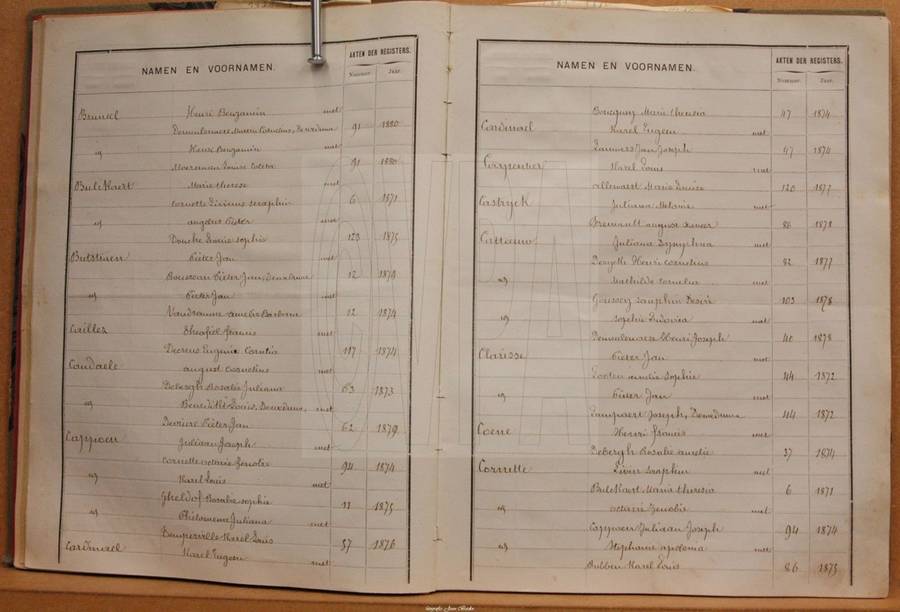 NAMEN EN VOORNAMEN.
AKTEN DER REGISTERS.
Nummer. Jaar.
Bruneel Henri Benjamin met
91 1880
id Henri Benjamin met
Moerman Louise Coleta 91 1880
Bulckaert Marie therese met
Cornette Livinus seraphin 6 1871
id angelus Pieter met
Douche Marie sophie 123 1875
Butstraen Pieter Jan met
Bousson Pieter Jan, 12 1879
id Pieter Jan met
Vandromme amelie Barbara 12 1874
Cailler theofiel francis met
Decreus Eugenie Cornelia 117 1874
Candaele august Cornelius met
Debergh Rosalie Juliana 63 1873
id Benedikt Louis, met
Pieter Jan 62 1879
Cappoen Juliaan Joseph met
Cornette octavie Zenobie 94 1874
id Karel Louis met
Gheldof Rosalie sophie 11 1875
id Philomena Juliana met
Karel Louis 57 1876
Cardinael Karel Eugeen met
NAMEN EN VOORNAMEN.
AKTEN DER REGISTERS.
Nummer. Jaar.
Marie theresia 47 1874
Cardinael Karel Eugeen met
Jan Joseph 47 1874
Carpentier Karel Louis met
allemaert Marie Louise 120 1877
Castryck Juliana Melanie met
august 86 1878
Catteauw Juliana Dymphna met
Henri Cornelius 82 1877
id Mathilde Cornelia met
Goussey Seraphin Desiré 103 1878
id sophie Ludovica met
Demeulenaere Henri Joseph 40 1878
Clarisse Pieter Jan met
amelie sophie 44 1872
id Pieter Jan met
Lampaert Joseph, 44 1872
Coene Henri francis met
Debergh Rosalie amelie 37 1874
Cornette Livin seraphin met
Bulckaert Maria theresia 6 1871
id octavie Zenobie met
Cappoen Juliaan Joseph 94 1874
id Stephanie apolonia met
Dubben Karel Louis 86 1875